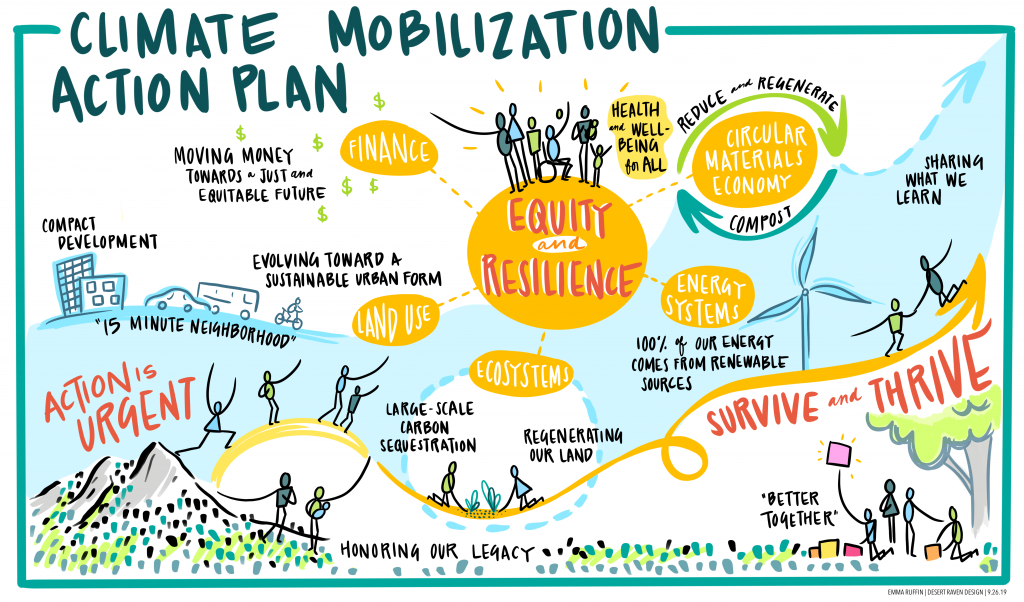 CLIMATE MOBILIZATION
ACTION PLAN
MOVING MONEY
TOWARDS a JUST and
EQUITABLE FUTURE
$
$
$
$ $
$
FINANCE
HEALTH
and WELL-
BEING
for ALL
REDUCE and REGENERATE
CIRCULAR
MATERIALS
ECONOMY
COMPOST
SHARING
WHAT WE
LEARN
EQUITY
and
RESILIENCE
COMPACT
DEVELOPMENT
"15 MINUTE NEIGHBORHOOD"
EVOLVING TOWARD A
SUSTAINABLE URBAN FORM
LAND USE
ENERGY
SYSTEMS
100% of OUR ENERGY
COMES FROM RENEWABLE
SOURCES
ECOSYSTEMS
LARGE-SCALE
CARBON
SEQUESTRATION
REGENERATING
OUR LAND
ACTION is
URGENT
SURVIVE and THRIVE
"BETTER
TOGETHER"
HONORING OUR LEGACY
EMMA RUFFIN | DESERT RAVEN DESIGN | 9.26.19